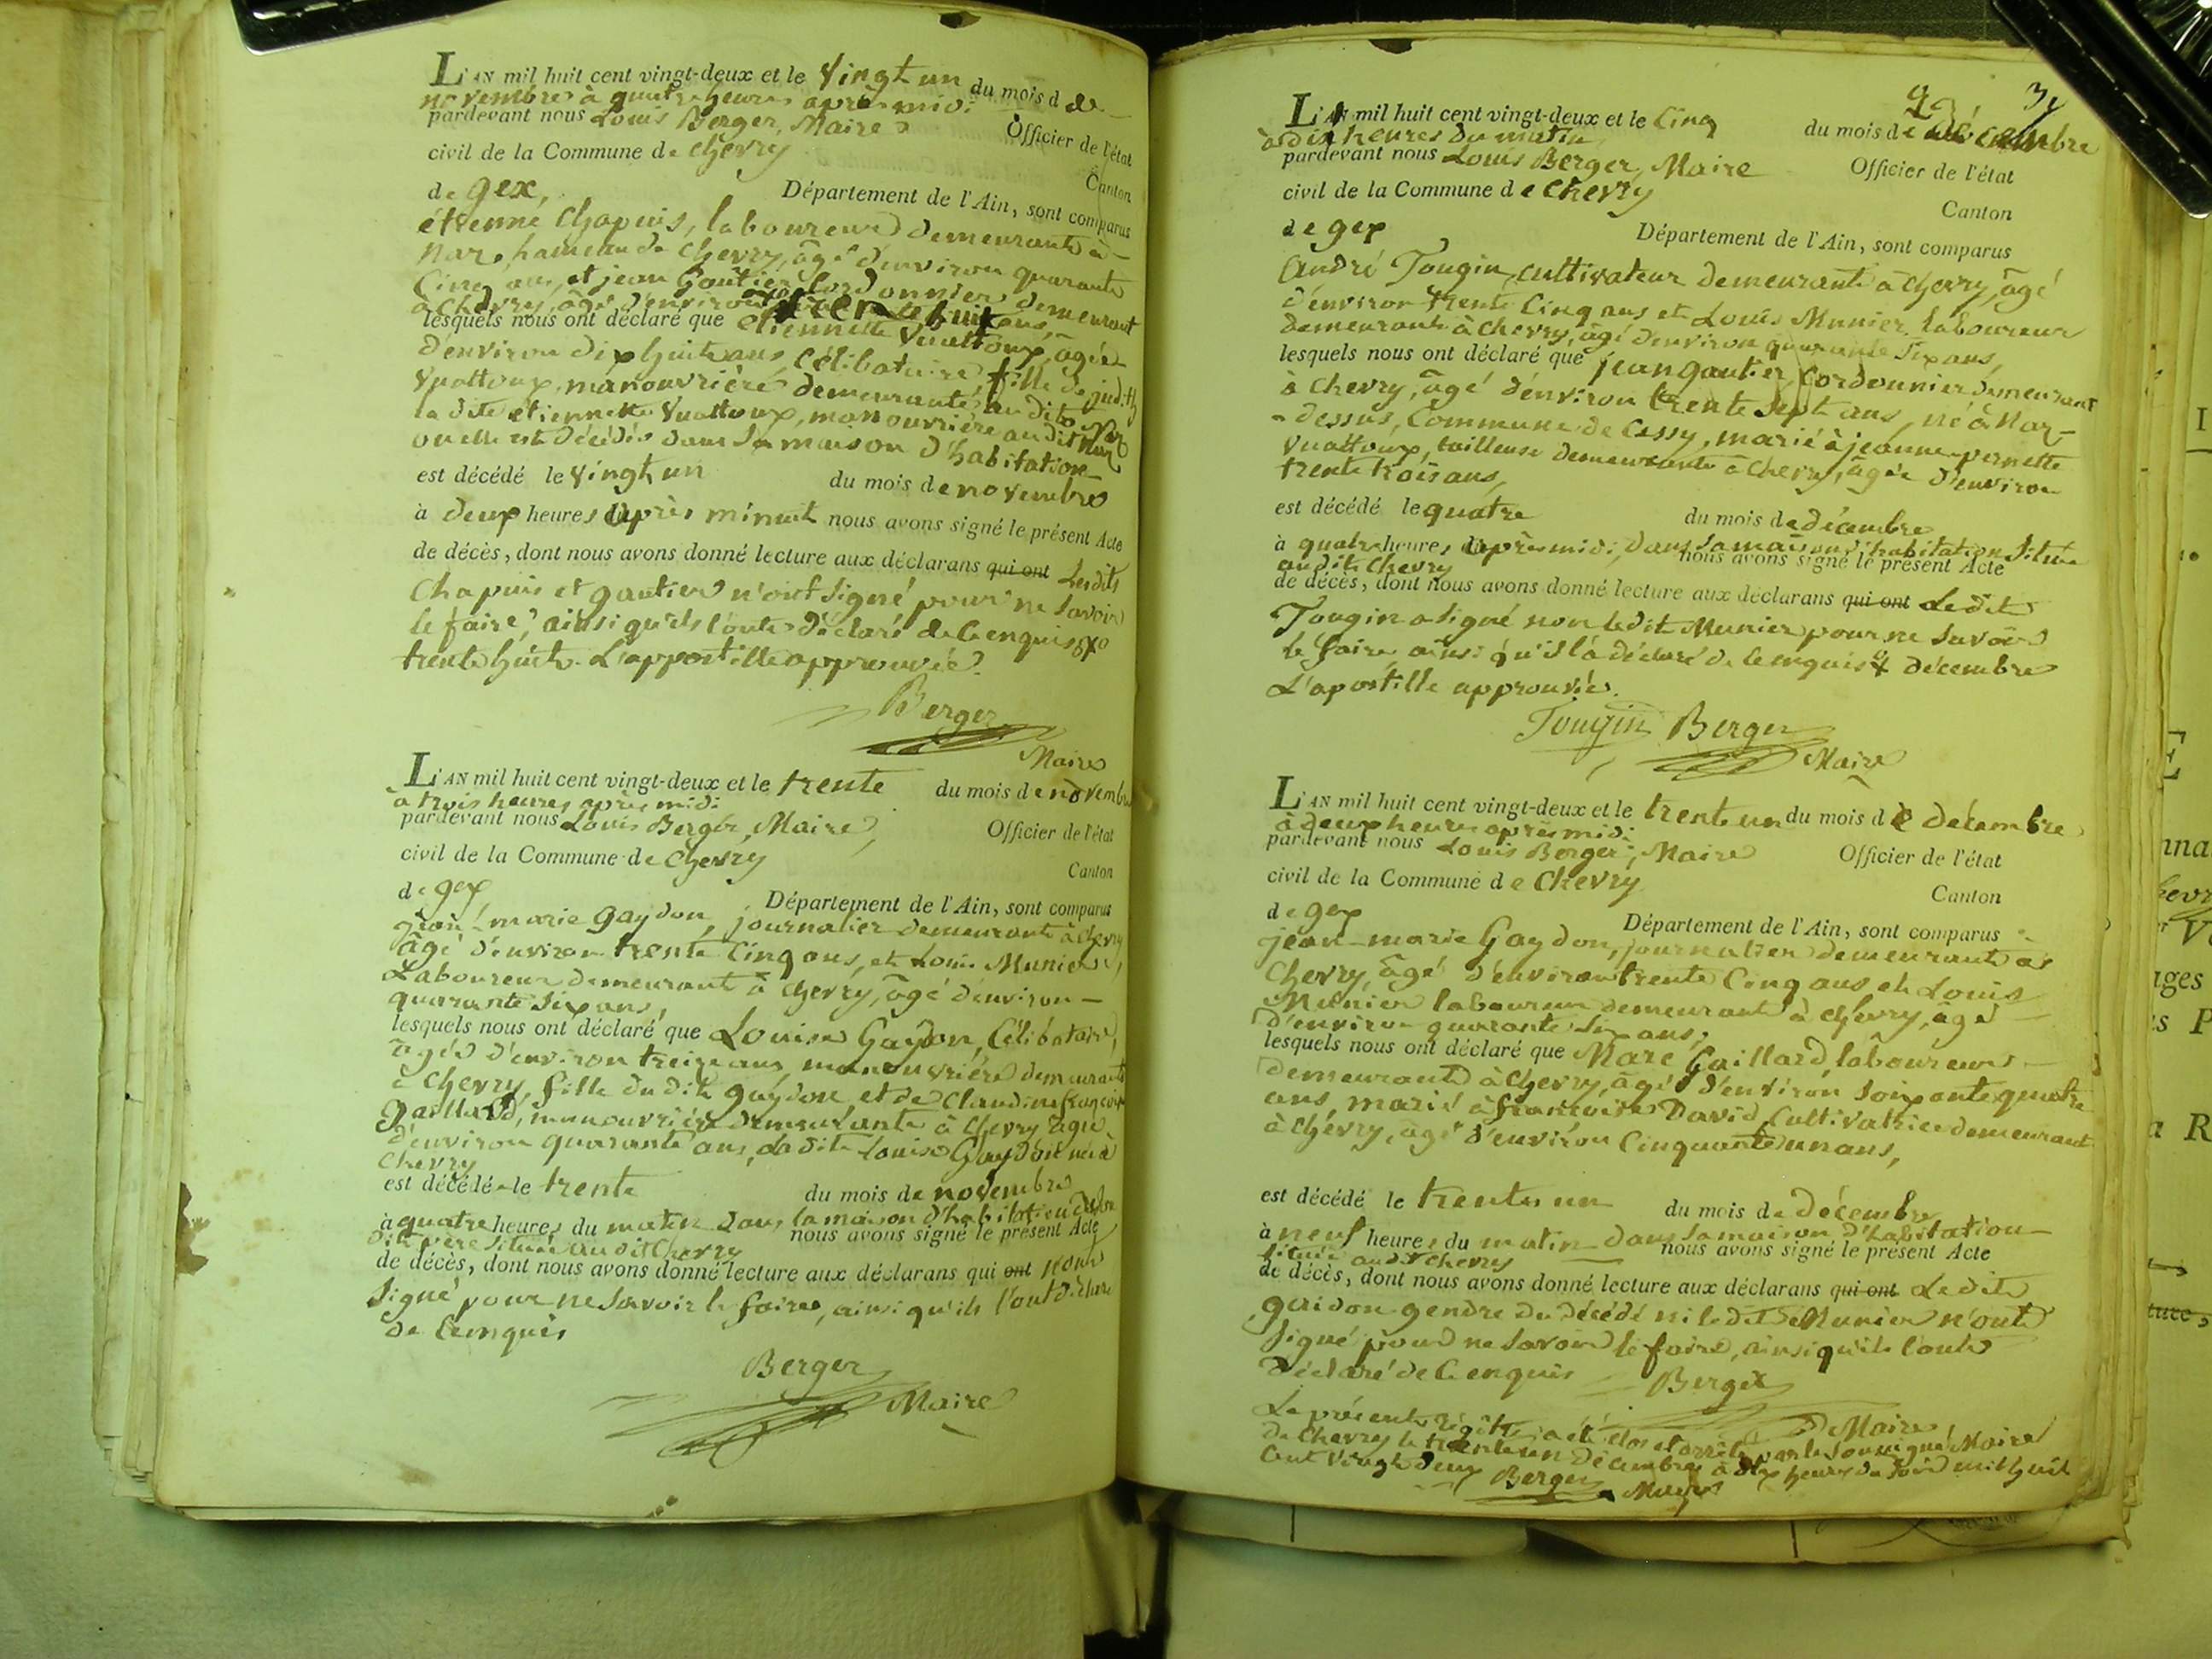 L'AN mil huit cent vingt-deux et le vingt un du mois d de
novembre à quatre heures après midi
pardevant nous Louis Berger, Maire Officier de l'état
civil de la Commune de Chevry Canton
de gex, Département de l'Ain, sont comparus
étienne Chapuis, laboureur demeurant à
Nar, hameau de Chevry, âgé d'environ quarante
Cinq ans, et jean Gautier Cordonnier demeurant
à Chevry, âgé d'environ trente huit ans,
lesquels nous ont déclaré que étiennette Vuattoux, âgée
d'environ dix huit ans, Célibataire, fille de judith
Vuattoux, manouvrière demeurante au dit Nar
la dite étiennette Vuattoux, manouvrière audit Nar
ou elle est décédée dans sa maison d'habitation
est décédé le vingt un du mois de novembre
à deux heures après minuit nous avons signé le présent Acte
de décès, dont nous avons donné lecture aux déclarans qui ont Lesdits
Chapuis et gautier n'ont signé pour ne savoir
le faire, ainsi qu'ils l'ont déclaré de ce enquis
trente huit. L'appostille approuvée.
Berger
Maire
L'AN mil huit cent vingt-deux et le trente du mois de novembre
à trois heures après midi
pardevant nous Louis Berger, Maire, Officier de l'état
civil de la Commune de Chevry Canton
de gex, Département de l'Ain, sont comparus
jean-marie Gaydon, journalier demeurant à Chevry
âgé d'environ trente Cinq ans, et Louis Munier,
Laboureur demeurant à Chevry, âgé d'environ
quarante six ans,
lesquels nous ont déclaré que Louise Gaydon, Célibataire,
âgée d'environ treize ans, manouvrière demeurante
à Chevry, fille du dit gaydon et de Claudine françoise
Gaillard, manouvrière demeurante à Chevry âgée
d'environ quarante ans, La dite Louise Gaydon née à
Chevry
est décédé le trente du mois de novembre
à quatre heures du matin dans la maison d'habitation de son
dit père située au dit Chevry nous avons signé le présent Acte
de décès, dont nous avons donné lecture aux déclarans qui ont n'ont
signé pour ne savoir le faire, ainsi qu'ils l'ont déclaré
de ce enquis
Berger
Maire
L'AN mil huit cent vingt-deux et le Cinq du mois de décembre
à dix heures du matin
pardevant nous Louis Berger, Maire Officier de l'état
civil de la Commune de Chevry Canton
de gex Département de l'Ain, sont comparus
André Tougin, cultivateur demeurant à Chevry, âgé
d'environ trente Cinq ans et Louis Munier, laboureur
demeurant à Chevry, âgé d'environ quarante six ans,
lesquels nous ont déclaré que jean gautier, Cordonnier demeurant
à Chevry, âgé d'environ trente sept ans, né à Nar
-dessus, Commune de Cessy, marié à jeanne-pernette
Vuattoux, tailleuse demeurante à Chevry, âgée d'environ
trente trois ans,
est décédé le quatre du mois de décembre
à quatre heures après midi, dans sa maison d'habitation située
audit Chevry nous avons signé le présent Acte
de décès, dont nous avons donné lecture aux déclarans qui ont Ledit
Tougin a signé non ledit Munier pour ne savoir
le faire ainsi qu'il l'a déclaré de ce enquis décembre
L'apostille approuvée.
Tougin Berger
Maire
L'AN mil huit cent vingt-deux et le trente un du mois de décembre
à deux heures après midi
pardevant nous Louis Berger, Maire Officier de l'état
civil de la Commune de Chevry Canton
de gex Département de l'Ain, sont comparus
jean-marie Gaydon, journalier demeurant à
Chevry, âgé d'environ trente Cinq ans et Louis
Munier laboureur demeurant à Chevry, âgé
d'environ quarante six ans,
lesquels nous ont déclaré que Marc Gaillard, laboureur
demeurant à Chevry, âgé d'environ soixante quatre
ans, marié à françoise David, Cultivatrice demeurant
à Chevry, âgé d'environ Cinquante un ans,
est décédé le trente un du mois de décembre
à neuf heures du matin dans sa maison d'habitation
située audit Chevry nous avons signé le présent Acte
de décès, dont nous avons donné lecture aux déclarans qui ont Ledit
gaidon gendre du décédé ni ledit Munier n'ont
signé pour ne savoir le faire, ainsi qu'ils l'ont
déclaré de ce enquis Berger
Maire
Le présent régître a été clos et arrêté par le soussigné Maire
de Chevry le trente un décembre à dix heures du soir mil huit
cent vingt deux Berger Maire